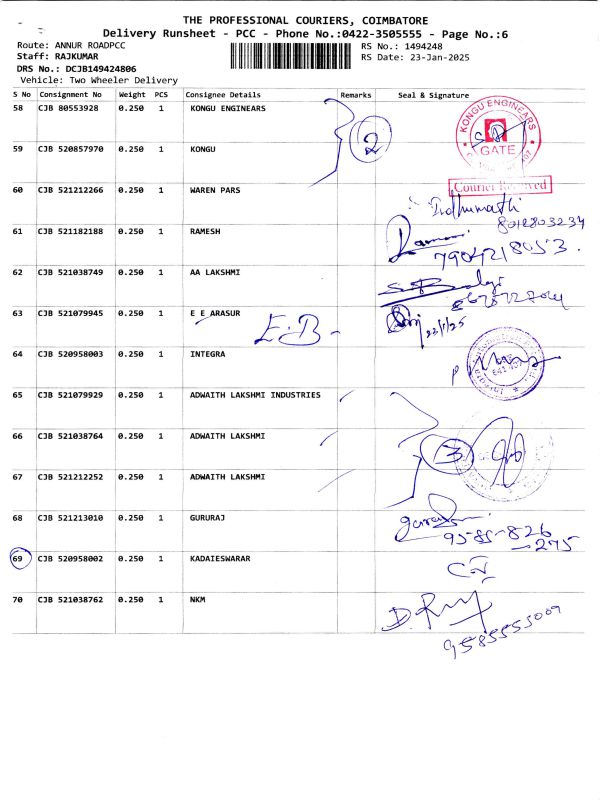 THE PROFESSIONAL COURIERS, COIMBATORE
Delivery Runsheet - PCC - Phone No.:0422-3505555 - Page No.:6
Route: ANNUR ROADPCC
RS No.: 1494248
Staff: RAJKUMAR
RS Date: 23-Jan-2025
DRS No.: DCJB149424806
Vehicle: Two Wheeler Delivery
S No Consignment No Weight PCS Consignee Details Remarks Seal & Signature
58 CJB 80553928 0.250 1 KONGU ENGINEARS
KONGU ENGINEARS
2
GATE
59 CJB 520857970 0.250 1 KONGU
Courier Received
60 CJB 521212266 0.250 1 WAREN PARS
Indhumathi
8012803234
61 CJB 521182188 0.250 1 RAMESH
7904218053.
62 CJB 521038749 0.250 1 AA LAKSHMI
63 CJB 521079945 0.250 1 E E ARASUR
E.B-
23/1/25
64 CJB 520958003 0.250 1 INTEGRA
65 CJB 521079929 0.250 1 ADWAITH LAKSHMI INDUSTRIES
66 CJB 521038764 0.250 1 ADWAITH LAKSHMI
3
67 CJB 521212252 0.250 1 ADWAITH LAKSHMI
68 CJB 521213010 0.250 1 GURURAJ
9585-826
-275
69 CJB 520958002 0.250 1 KADAIESWARAR
70 CJB 521038762 0.250 1 NKM
9585555009